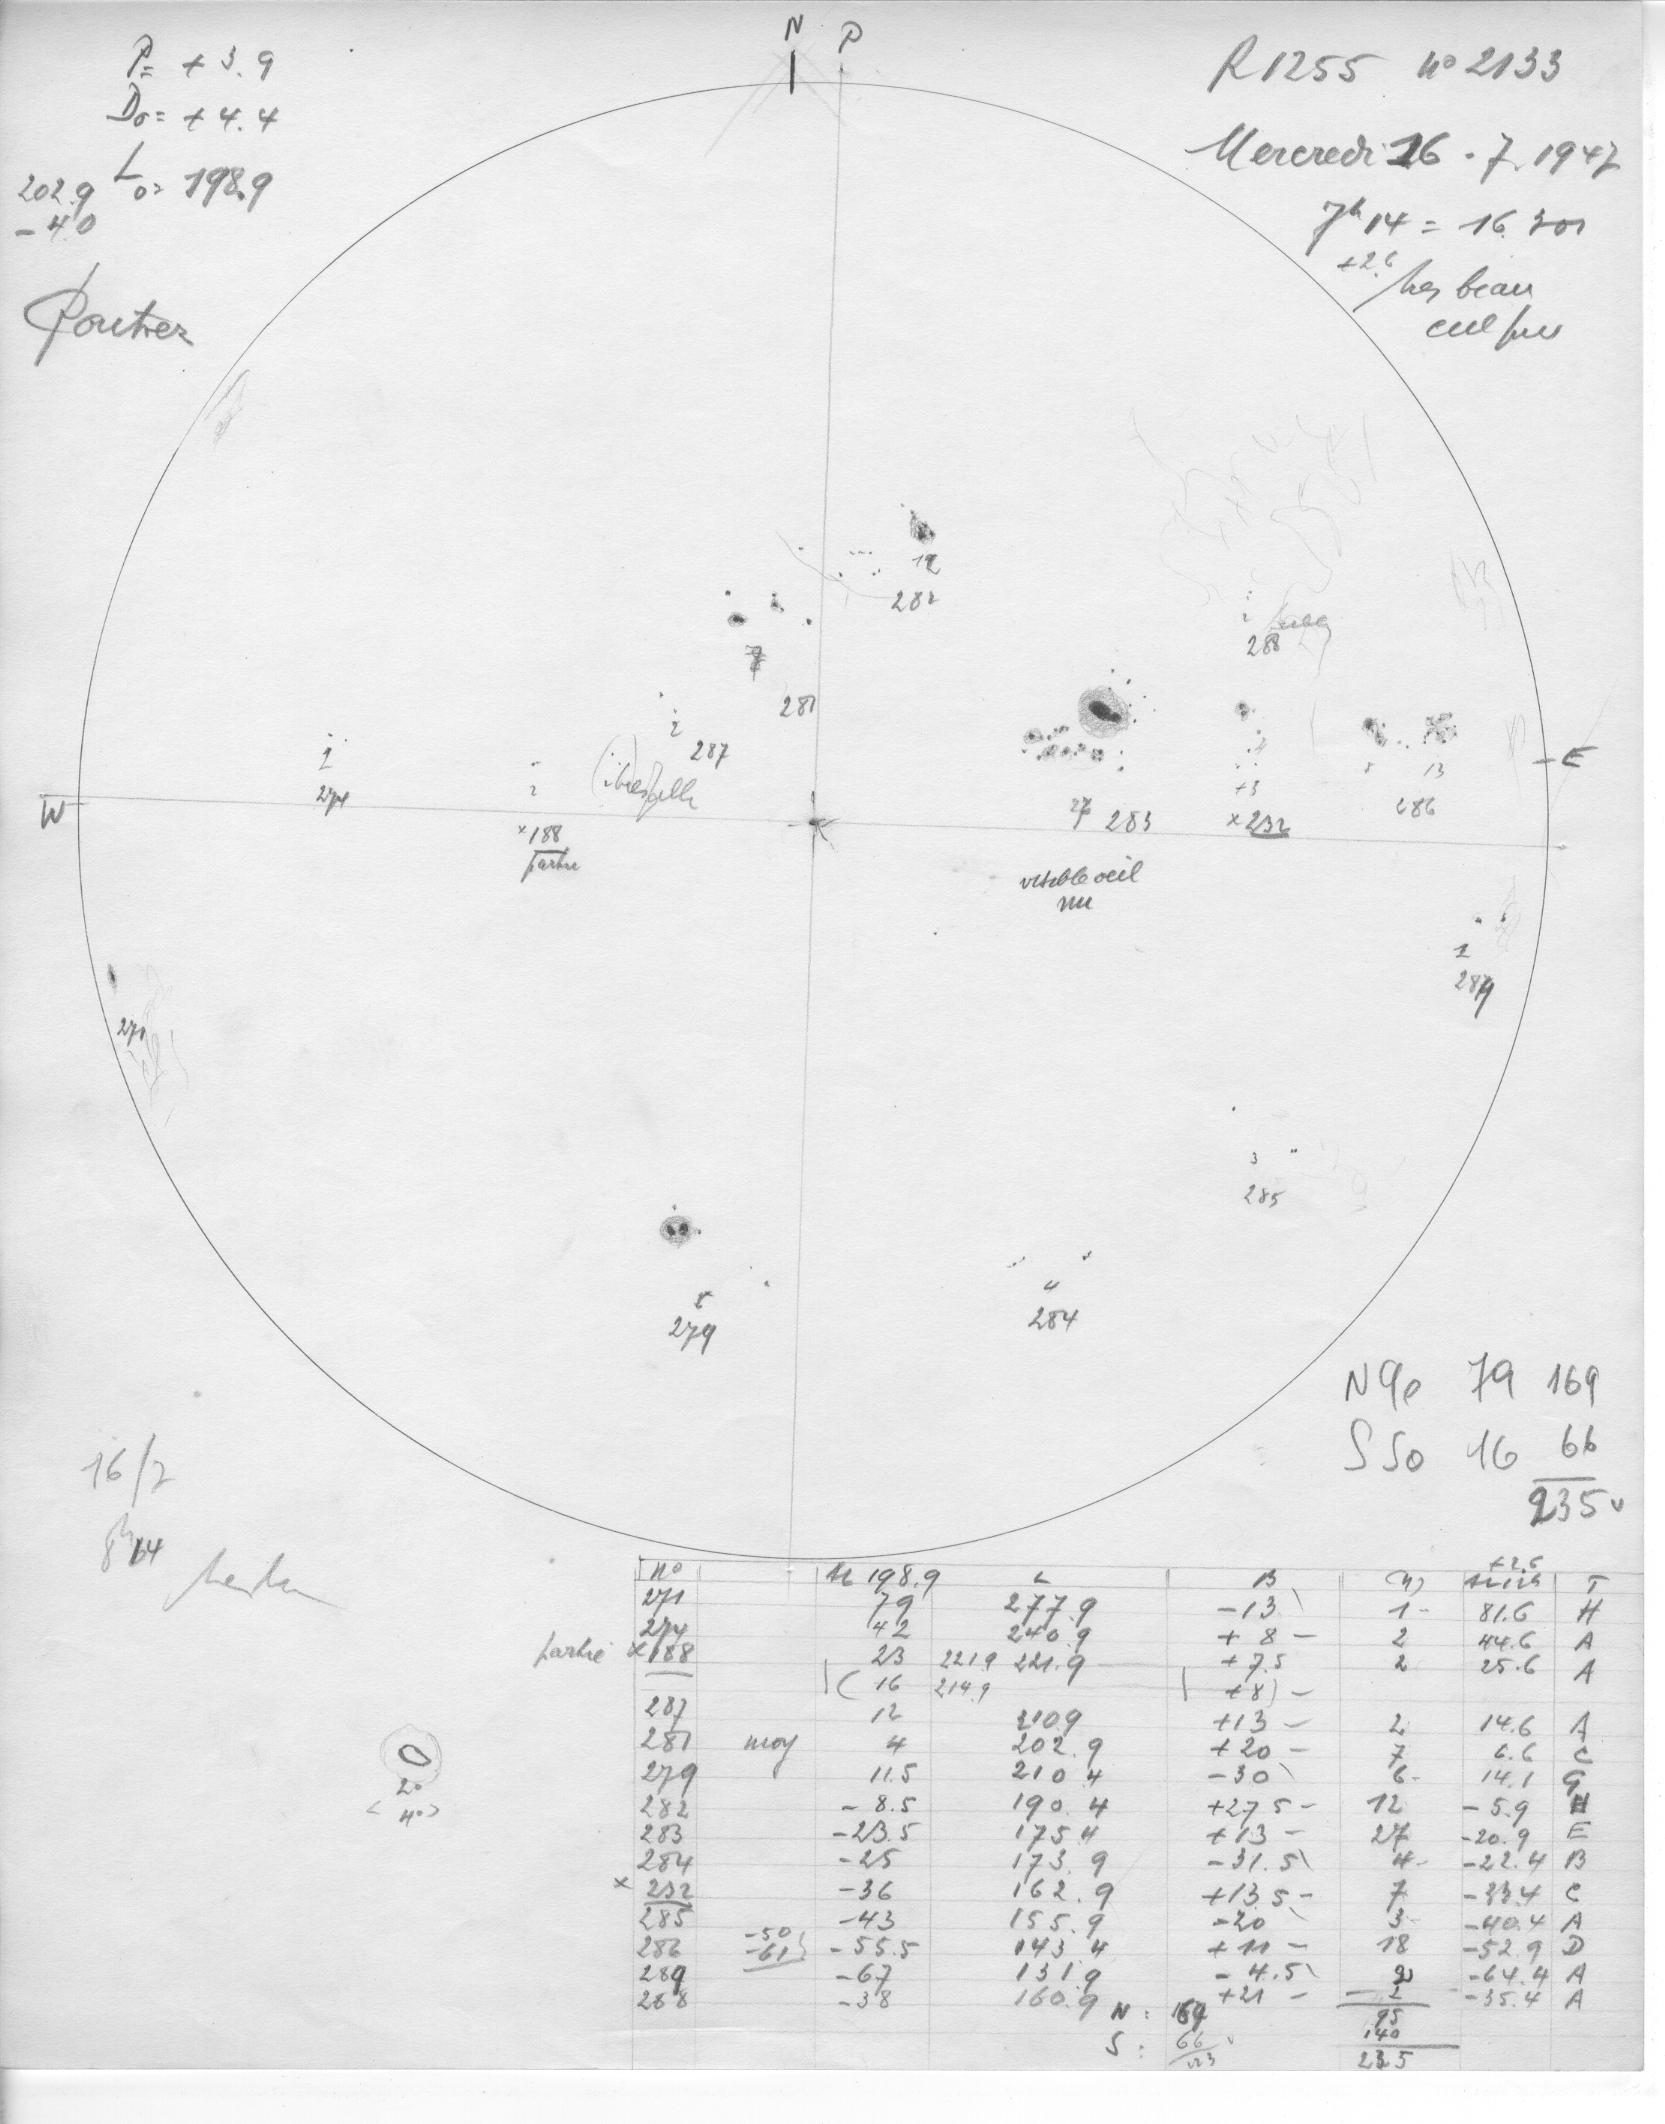 N P
P= +3.9
D0= +4.4
L0= 198.9
202.9
-4.0
R1255 no 2133
Mercredi 16.7.1947
7h14 =
+2.6
beau
12
282
7
281
2
288
1
274
2
287
2
×188
partie
27 283
+3
×232
13
286
E
W
visible oeil
nu
1
289
271
3
285
8
279
4
284
N 9e 79 169
S 5e 16 66
235
16/7
8h14
2°
< 4°>
+2.6
no 198.9 L B T
271 79 277.9 -13 1 81.6 H
274 42 240.9 +8 - 2 44.6 A
partie ×188 23 221.9 221.9 +7.5 2 25.6 A
( 16 214.9 +8) -
287 12 210.9 +13 - 2 14.6 A
281 moy 4 202.9 +20 - 7 6.6 C
279 11.5 210.4 -30 6 14.1 G
282 -8.5 190.4 +27.5 - 12 -5.9 H
283 -23.5 175.4 +13 - 27 -20.9 E
284 -25 173.9 -31.5 4 -22.4 B
× 232 -36 162.9 +13.5 - 7 -33.4 C
285 -43 155.9 -20 3 -40.4 A
286 -50 -61 -55.5 143.4 +11 - 18 -52.9 D
289 -67 131.9 -4.5 2 -64.4 A
288 -38 160.9 +21 - 2 -35.4 A
N: 169 95
S: 66 140
235